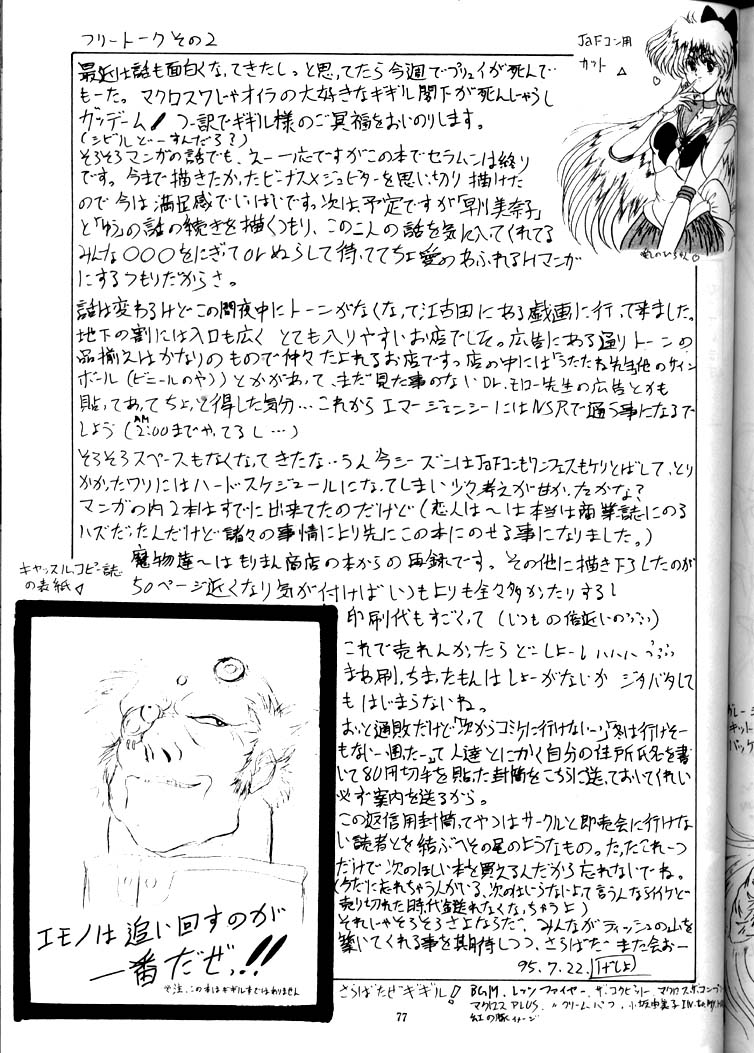 フリートーク その2
JaFコン用
カット
最近は話も面白くなってきたしっと思ってたら今週でプリュイが死んで
もーた。マクロス7じゃオイラの大好きなギギル閣下が死んじゃうし
ガッデーム! つー訳でギギル様のご冥福をおいのりします。
(シビルどーすんだろ?)
そろそろマンガの話でも、えー一応ですがこの本でセラムンは終り
です。今まで描きたかったビーナス×ジュピターを思い切り描けた
ので今は満足感でいっぱいです。次は、予定ですが「早川美奈子」
と「ゆう」の話の続きを描くつもり、この二人の話を気に入ってくれてる
みんな○○○をにぎってorぬらして待っててちょ愛のあふれるHマンガ
にするつもりだからさ。
話は変わるけどこの間夜中にトーンがなくなって江古田にある戯画に行って来ました。
地下の割には入口も広く とても入りやすいお店でした。広告にある通りトーンの
品揃えはかなりのもので仲々たよれるお店ですっ店の中には「うたたね先生他のサイン
ボール(ビニールのやつ)とかがあって、まだ見た事のないDr.モロー先生の広告とかも
貼ってあってちょっと得した気分…これからエマージェンシーにはNSRで通う事になるで
しょう(AM2:00までやってるし…)
そろそろスペースもなくなってきたな…うん今シーズンはJaFコンもワンフェスもケリとばして、とり
かかったワリにはハードスケジュールになってしまい少々考えが甘かったかな?
マンガの内2本はすでに出来てたのだけど(恋人は〜は本当は商業誌にのる
ハズだったんだけど諸々の事情により先にこの本にのせる事になりました。)
魔物達〜はもりまん商店の本からの再録です。その他に描き下ろしたのが
50ページ近くなり気が付けばいつもよりも全々多かったりするし
印刷代もすごくって(いつもの倍近いのっっ)
これで売れんかったらどーしよーしいいいっっっ
まあ刷っちまったもんはしょーがないか ジタバタして
もはじまらないね。
おっと通販だけど「次からコミケに行けないーっ」「冬は行けそー
もないー困ったーっ」て人達とにかく自分の住所氏名を書
いて80円切手を貼った封筒をこちらに送っておいてくれい
必ず案内を送るから。
この返信用封筒ってやつはサークルと即売会に行けな
い読者とを結ぶへその尾のようなもの。たったこれ一つ
だけで次のほしい本を買えるんだから忘れないでね。
(今だに忘れちゃう人がいる、次のはいらないよって言うんならイイケど
売り切れた時代金送れなくなっちゃうよ)
それじゃそろそろさよならだ、みんながティッシュの山を
築いてくれる事を期待しつつ、さらばだ また会おー
95.7.22.
キャッスル、コピー誌
の表紙
エモノは追い回すのが
一番だぜっ!!
注、この本はギギル本ではありません
さらばだぜギギル!
BGM. レッツファイヤー、ザ・コクピット、マクロスザ・コンプ
マクロスPLUS
紅の豚イメージ
77